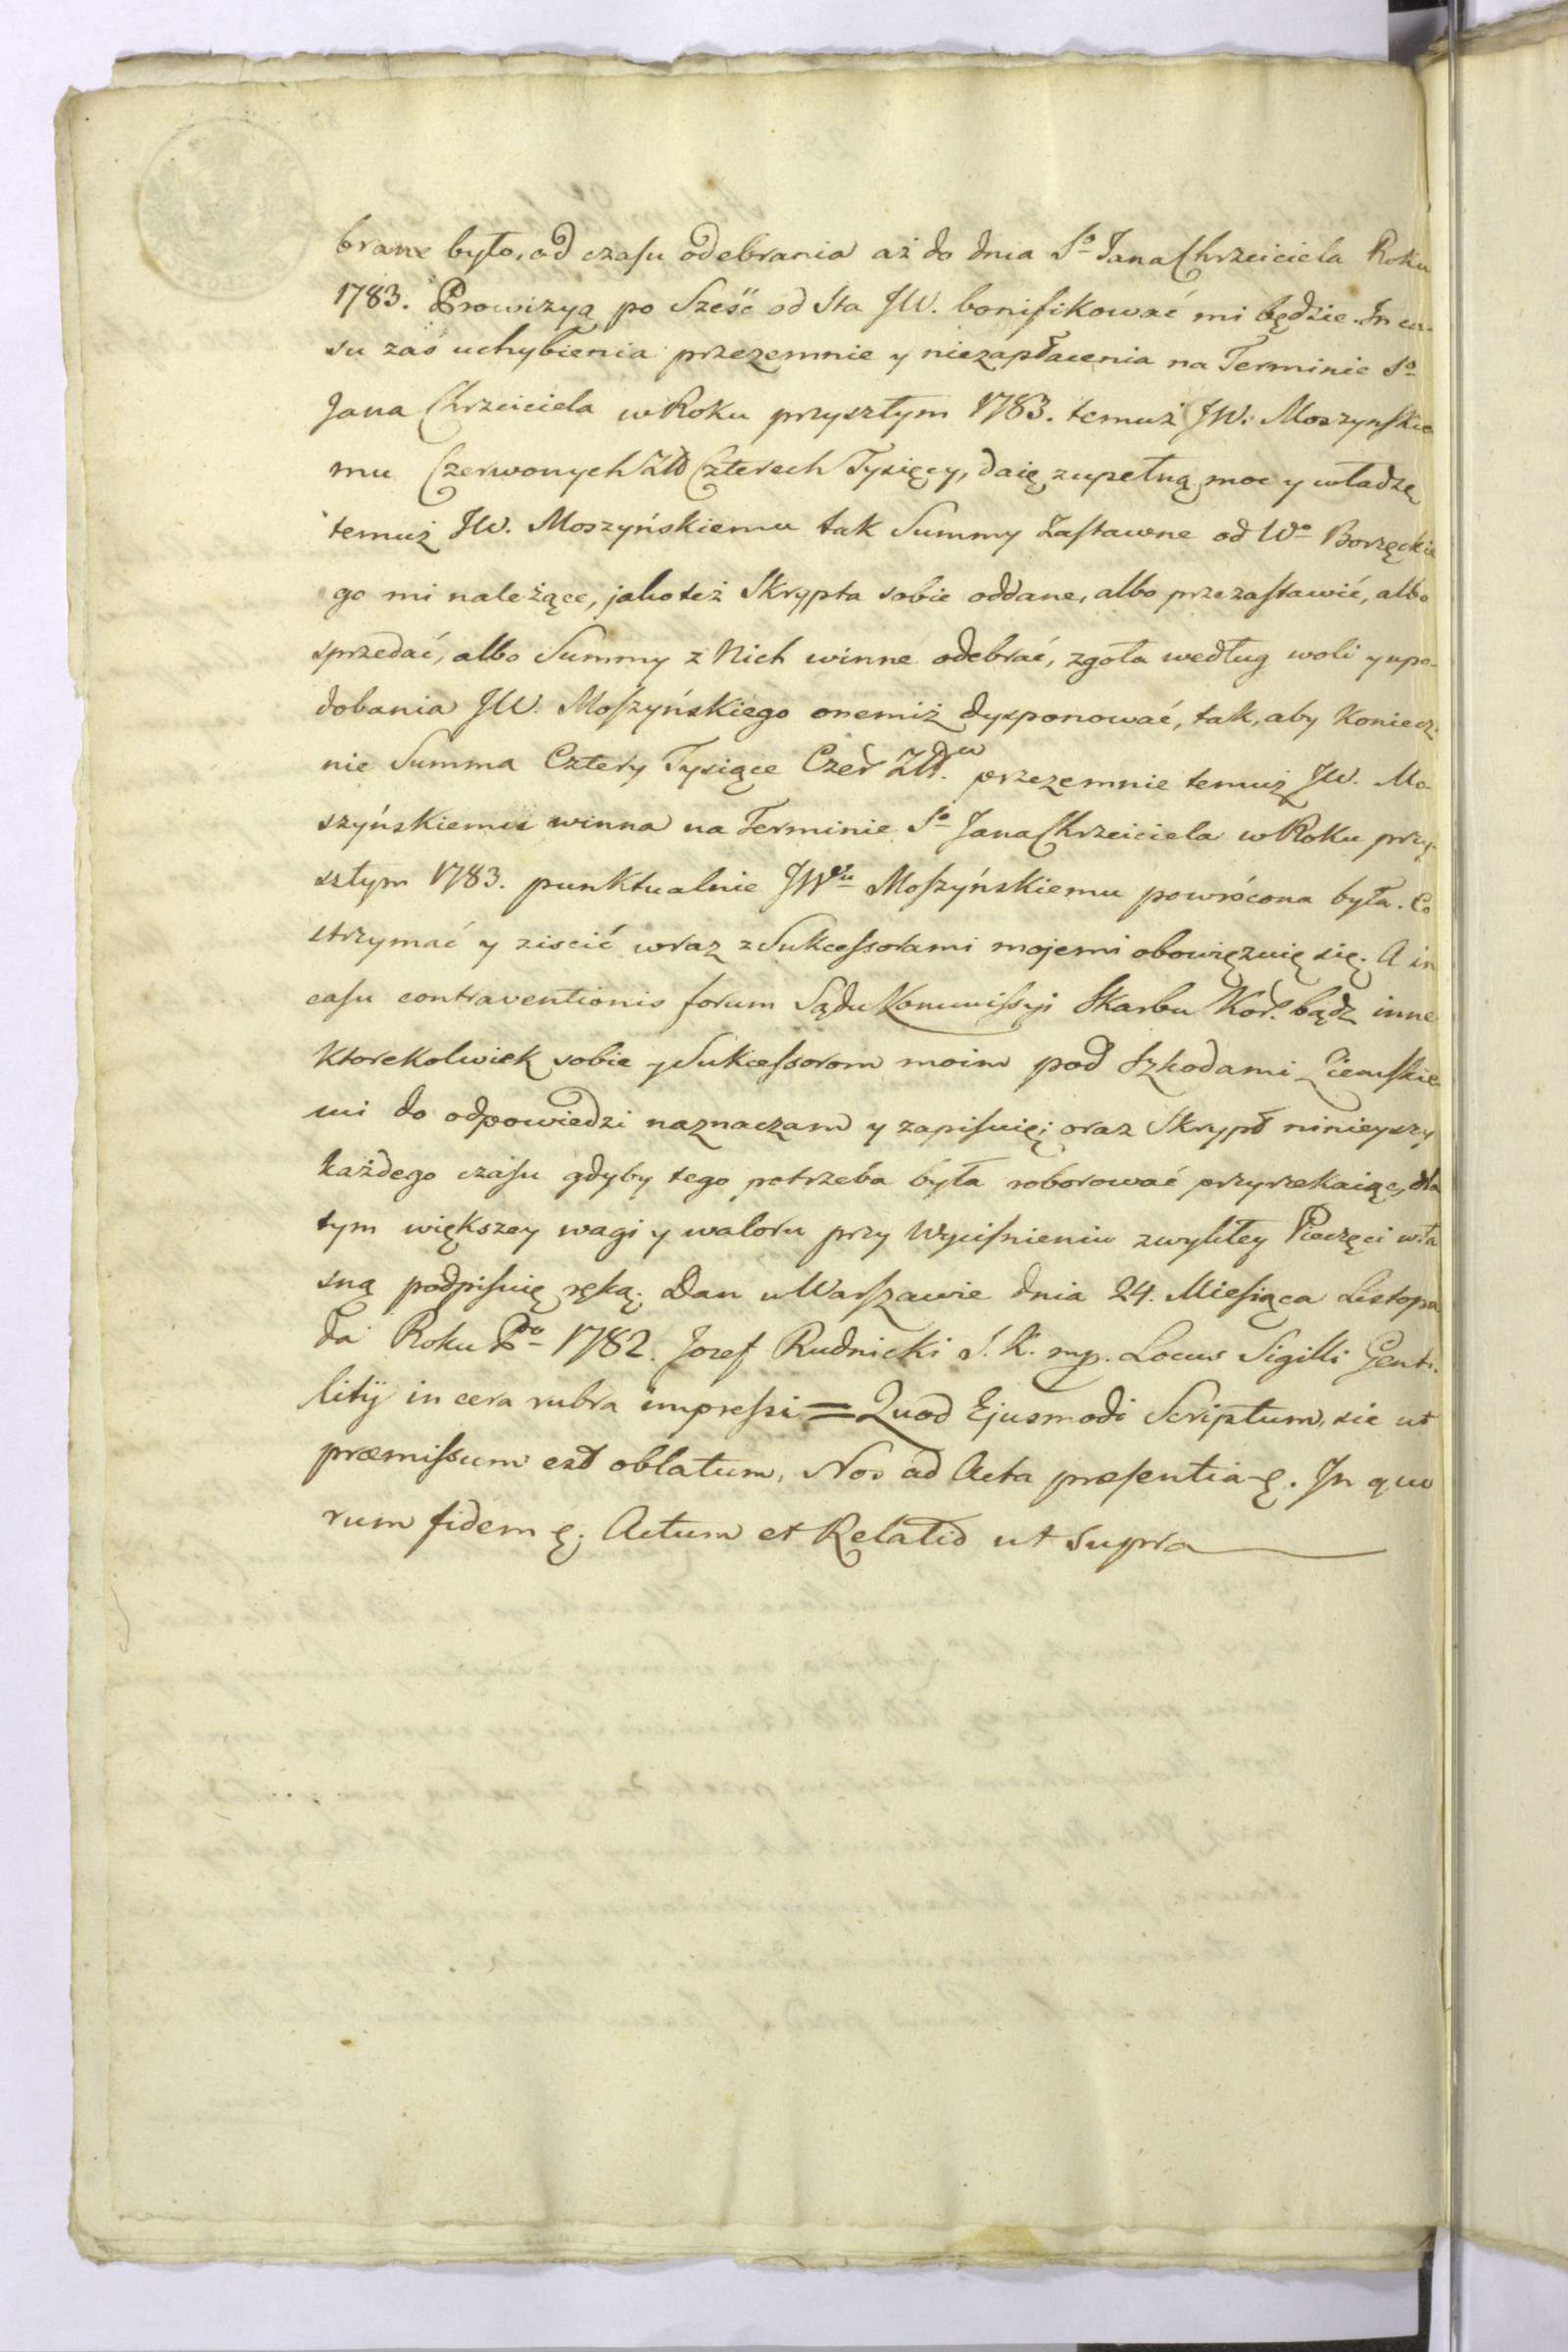 brane było, od czasu odebrania aż do dnia So Jana Chrzciciela Roku
1783. Prowizyą po Sześć od Sta JW. bonifikować mi będzie. In ca-
su zaś uchybienia przezemnie y niezapłacenia na Terminie So
Jana Chrzciciela w Roku przyszłym 1783. temuż JW. Moszynskie
mu Czerwonych Złł Czterech Tysięcy, daię zupełną moc y władzę
temuż JW. Moszyńskiemu tak Summy Zastawne od Wo Borzęckie
go mi należące, jako też Skrypta sobie oddane, albo przezastawić, albo
sprzedać, albo Summy z Nich winne odebrać, zgoła według woli y upo-
dobania JW. Moszyńskiego onemiż dysponować, tak, aby koniecz-
nie Summa Cztery Tysiące Czer Złł.ch przezemnie temuż JW. Mo-
szyńskiemu winna na Terminie So Jana Chrzciciela w Roku przy-
szłym 1783. punktualnie JWmu Moszyńskiemu powrócona była. Co
strzymać y ziscić wraz z Sukcessorami mojemi obowięzuię się. A in
casu contraventionis forum Sądu Kommissyi Skarbu Kor. bądź inne
ktorekolwiek sobie y Sukcessorom moim pod Szkodami Ziemskie
mi do odpowiedzi naznaczam y zapisuię; oraz Skrypt ninieyszy
każdego czasu gdyby tego potrzeba była roborować przyrzekaiąc, dla
tym większey wagi y waloru przy Wyciśnieniu zwykłey Pieczęci wła
sną podpisuię ręką. Dan w Warszawie dnia 24. Miesiąca Listopa
da Roku Po 1782. Jozef Rudnicki S. K. mp. Locus Sigilli Genti-
litij in cera rubra impressi = Quod Ejusmodi Scriptum, sic ut
præmissum est oblatum, Nos ad Acta præsentia. In quo
rum fidem. Actum et Relatio ut supra